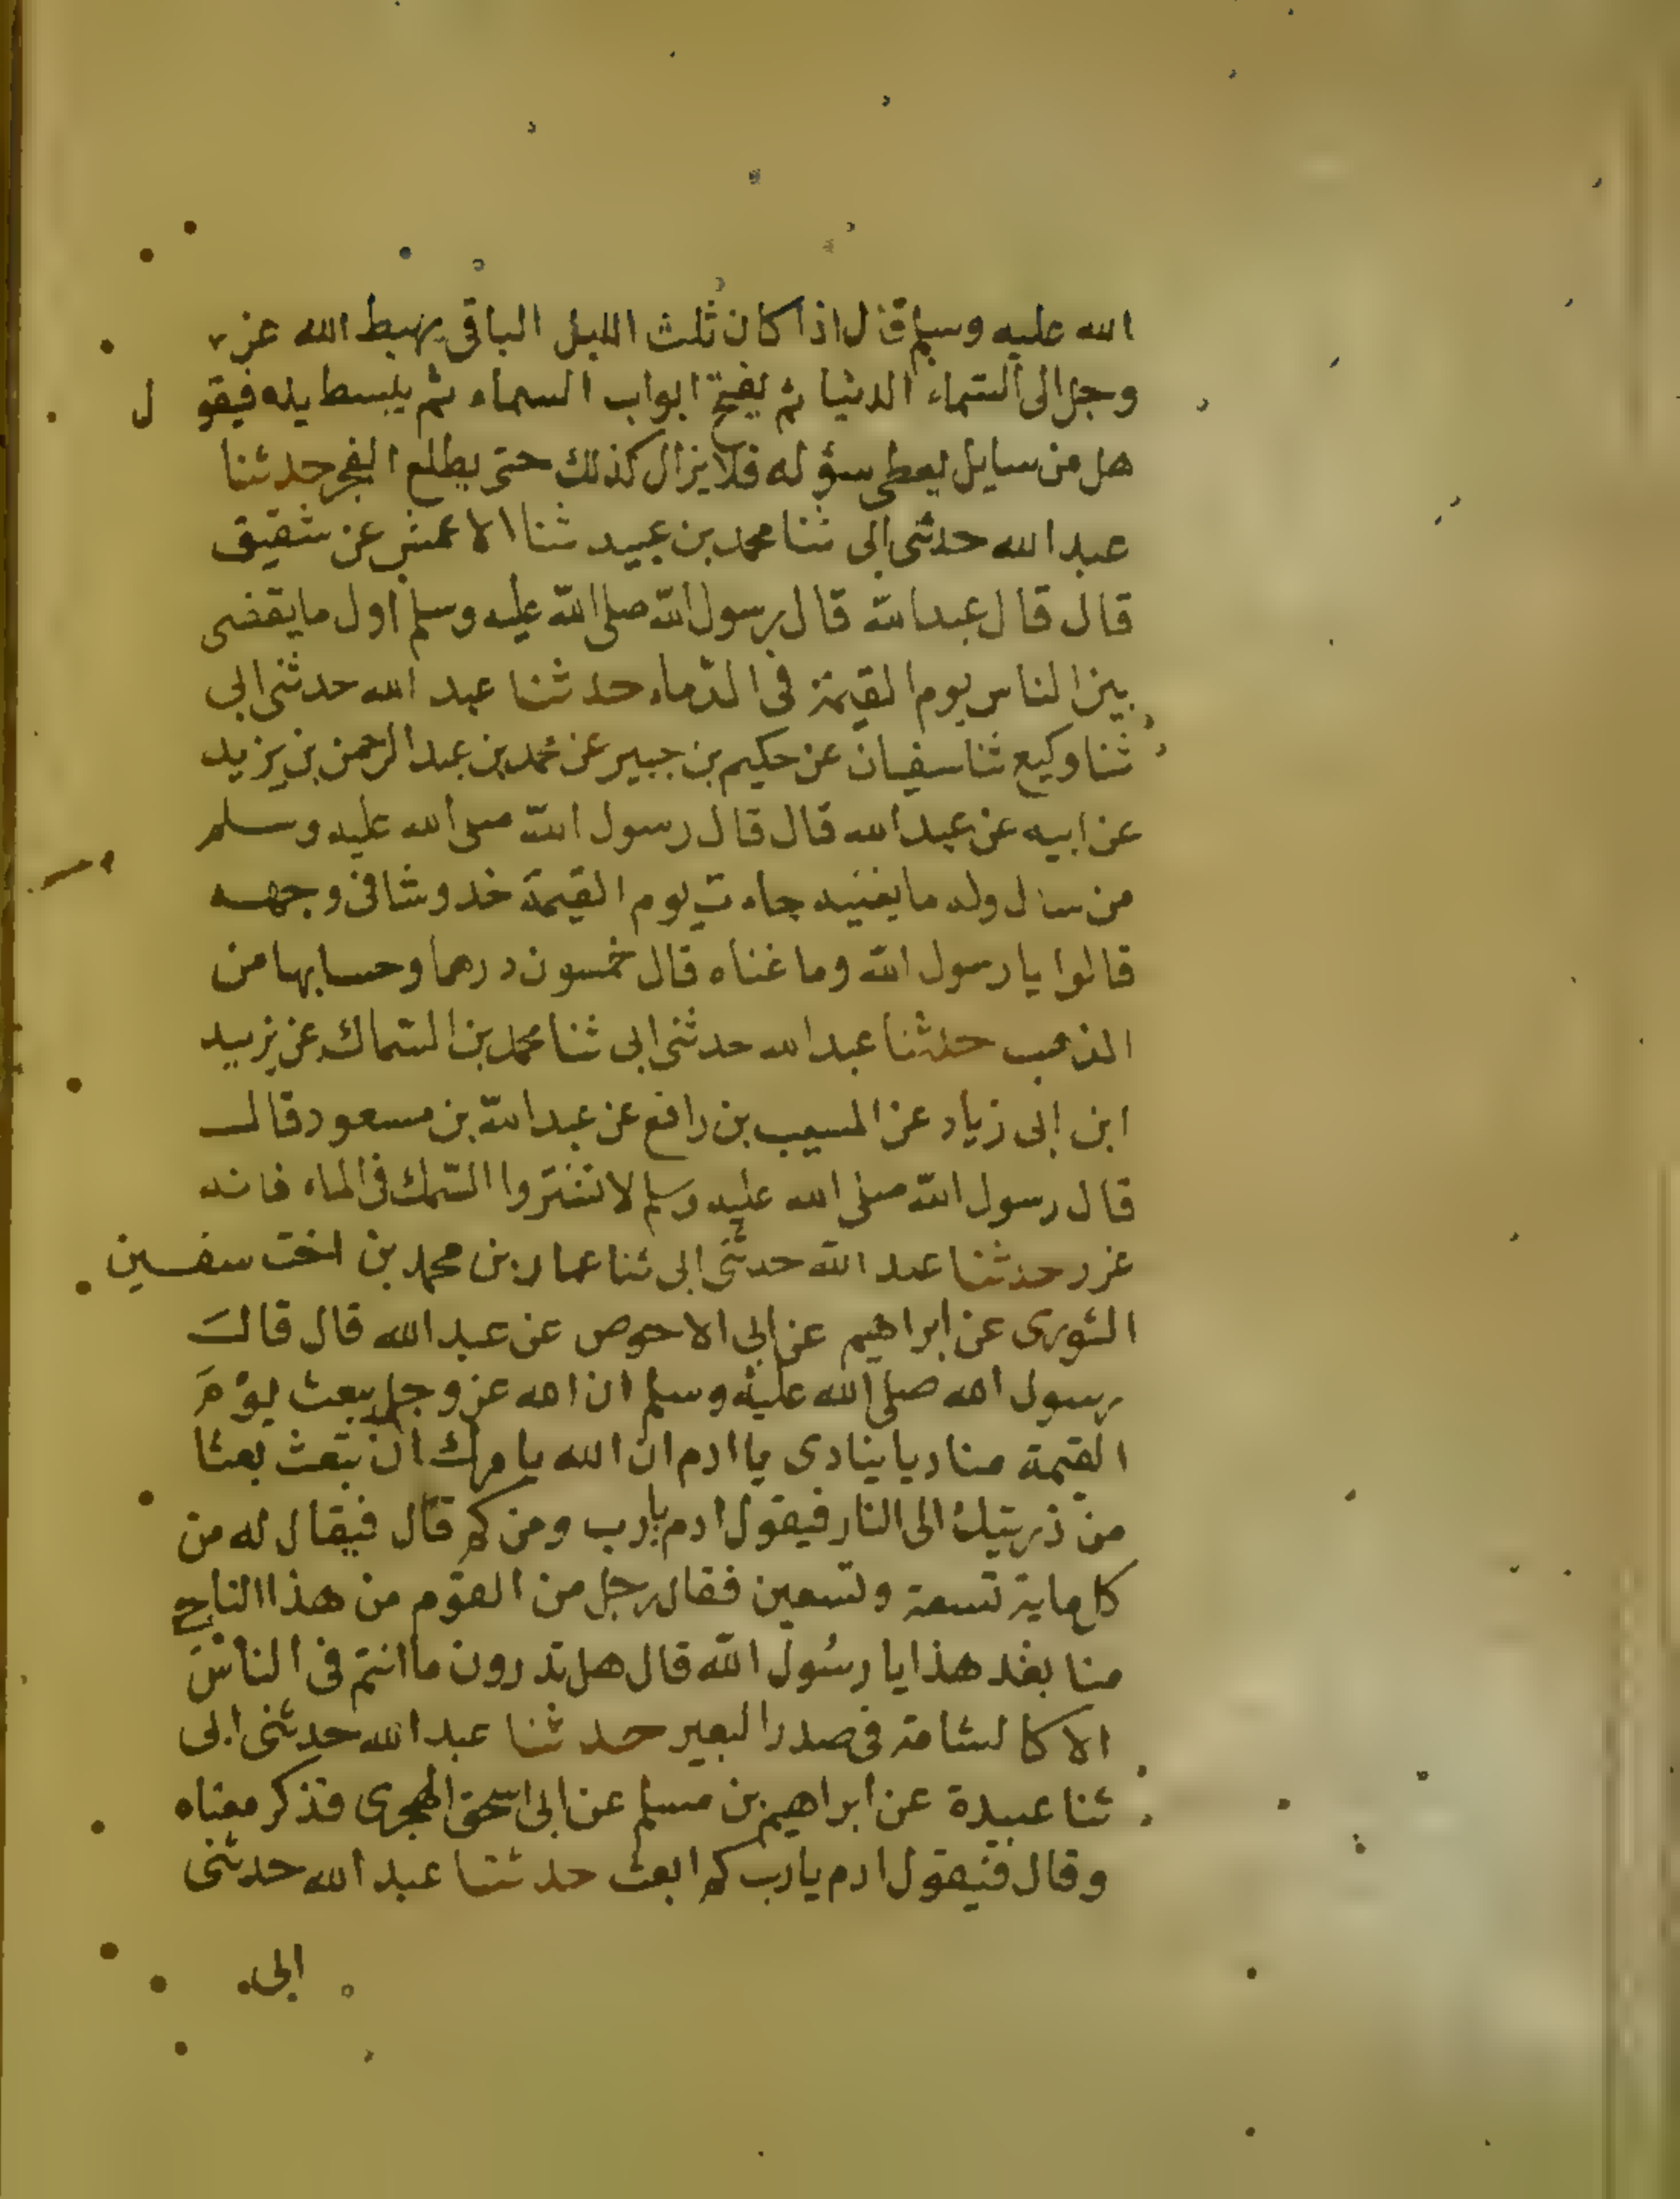 الله عليه وسلم قال اذا كان ثلث الليل الباقى يهبط الله عز
وجل الى السماء الدنيا ثم يفتح ابواب السماء ثم يبسط يده فيقول
هل من سايل يعطى سؤله فلا يزال كذلك حتى يطلع الفجر حدثنا
عبد الله حدثنى ابى ثنا محمد بن عبيد ثنا الاعمش عن شقيق
قال قال عبد الله قال رسول الله صلى الله عليه وسلم اول ما يقضى
بين الناس يوم القيمة فى الدماء حدثنا عبد الله حدثنى ابى
ثنا وكيع ثنا سفيان عن حكيم بن جبير عن محمد بن عبد الرحمن بن يزيد
عن ابيه عن عبد الله قال قال رسول الله صلى الله عليه وسلم
من سال وله ما يغنيه جاءت يوم القيمة خدوشا فى وجهه
قالوا يا رسول الله وما غناه قال خمسون درهما وحسابها من
الذهب حدثنا عبد الله حدثنى ابى ثنا محمد بن السماك عن يزيد
ابن ابى زياد عن المسيب بن رافع عن عبد الله بن مسعود قال
قال رسول الله صلى الله عليه وسلم لا تشتروا السمك فى الماء فانه
غرر حدثنا عبد الله حدثنى ابى ثنا عمار بن محمد بن اخت سفين
الثورى عن ابراهيم عن ابى الاحوص عن عبد الله قال قال
رسول الله صلى الله عليه وسلم ان الله عز وجل يبعث يوم
القيمة مناديا ينادى يا ادم ان الله يامرك ان تبعث بعثا
من ذريتك الى النار فيقول ادم يا رب ومن كم قال فيقال له من
كل ماية تسعة وتسعين فقال رجل من القوم من هذا الناجى
منا بعد هذا يا رسول الله قال هل تدرون ما انتم فى الناس
الا كالشامة فى صدر البعير حدثنا عبد الله حدثنى ابى
ثنا عبيدة عن ابراهيم بن مسلم عن ابى اسحق الهجرى فذكر معناه
وقال فيقول ادم يا رب كم ابعث حدثنا عبد الله حدثنى
ابى